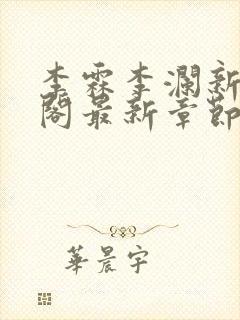 李霖李瀾新
閣最新章節
華晨宇